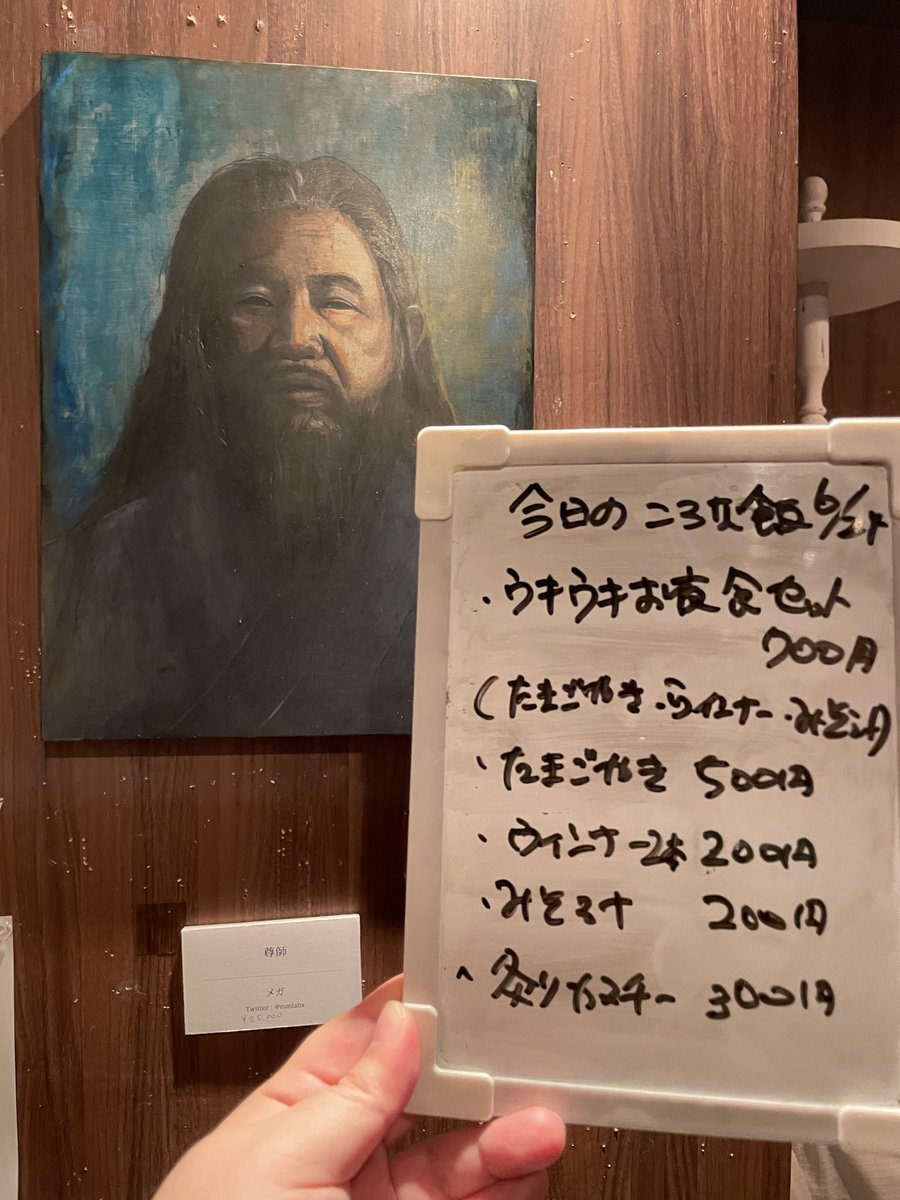 今日のころな飯 6/24
・ウキウキお夜食セット
700円
(たまごやき・ウインナー・みそ汁)
・たまごやき 500円
・ウインナー2本 200円
・みそスナ 200円
・炙りカスチー 300円
尊師
メガ
Twitter : @mmlabx
¥25,000